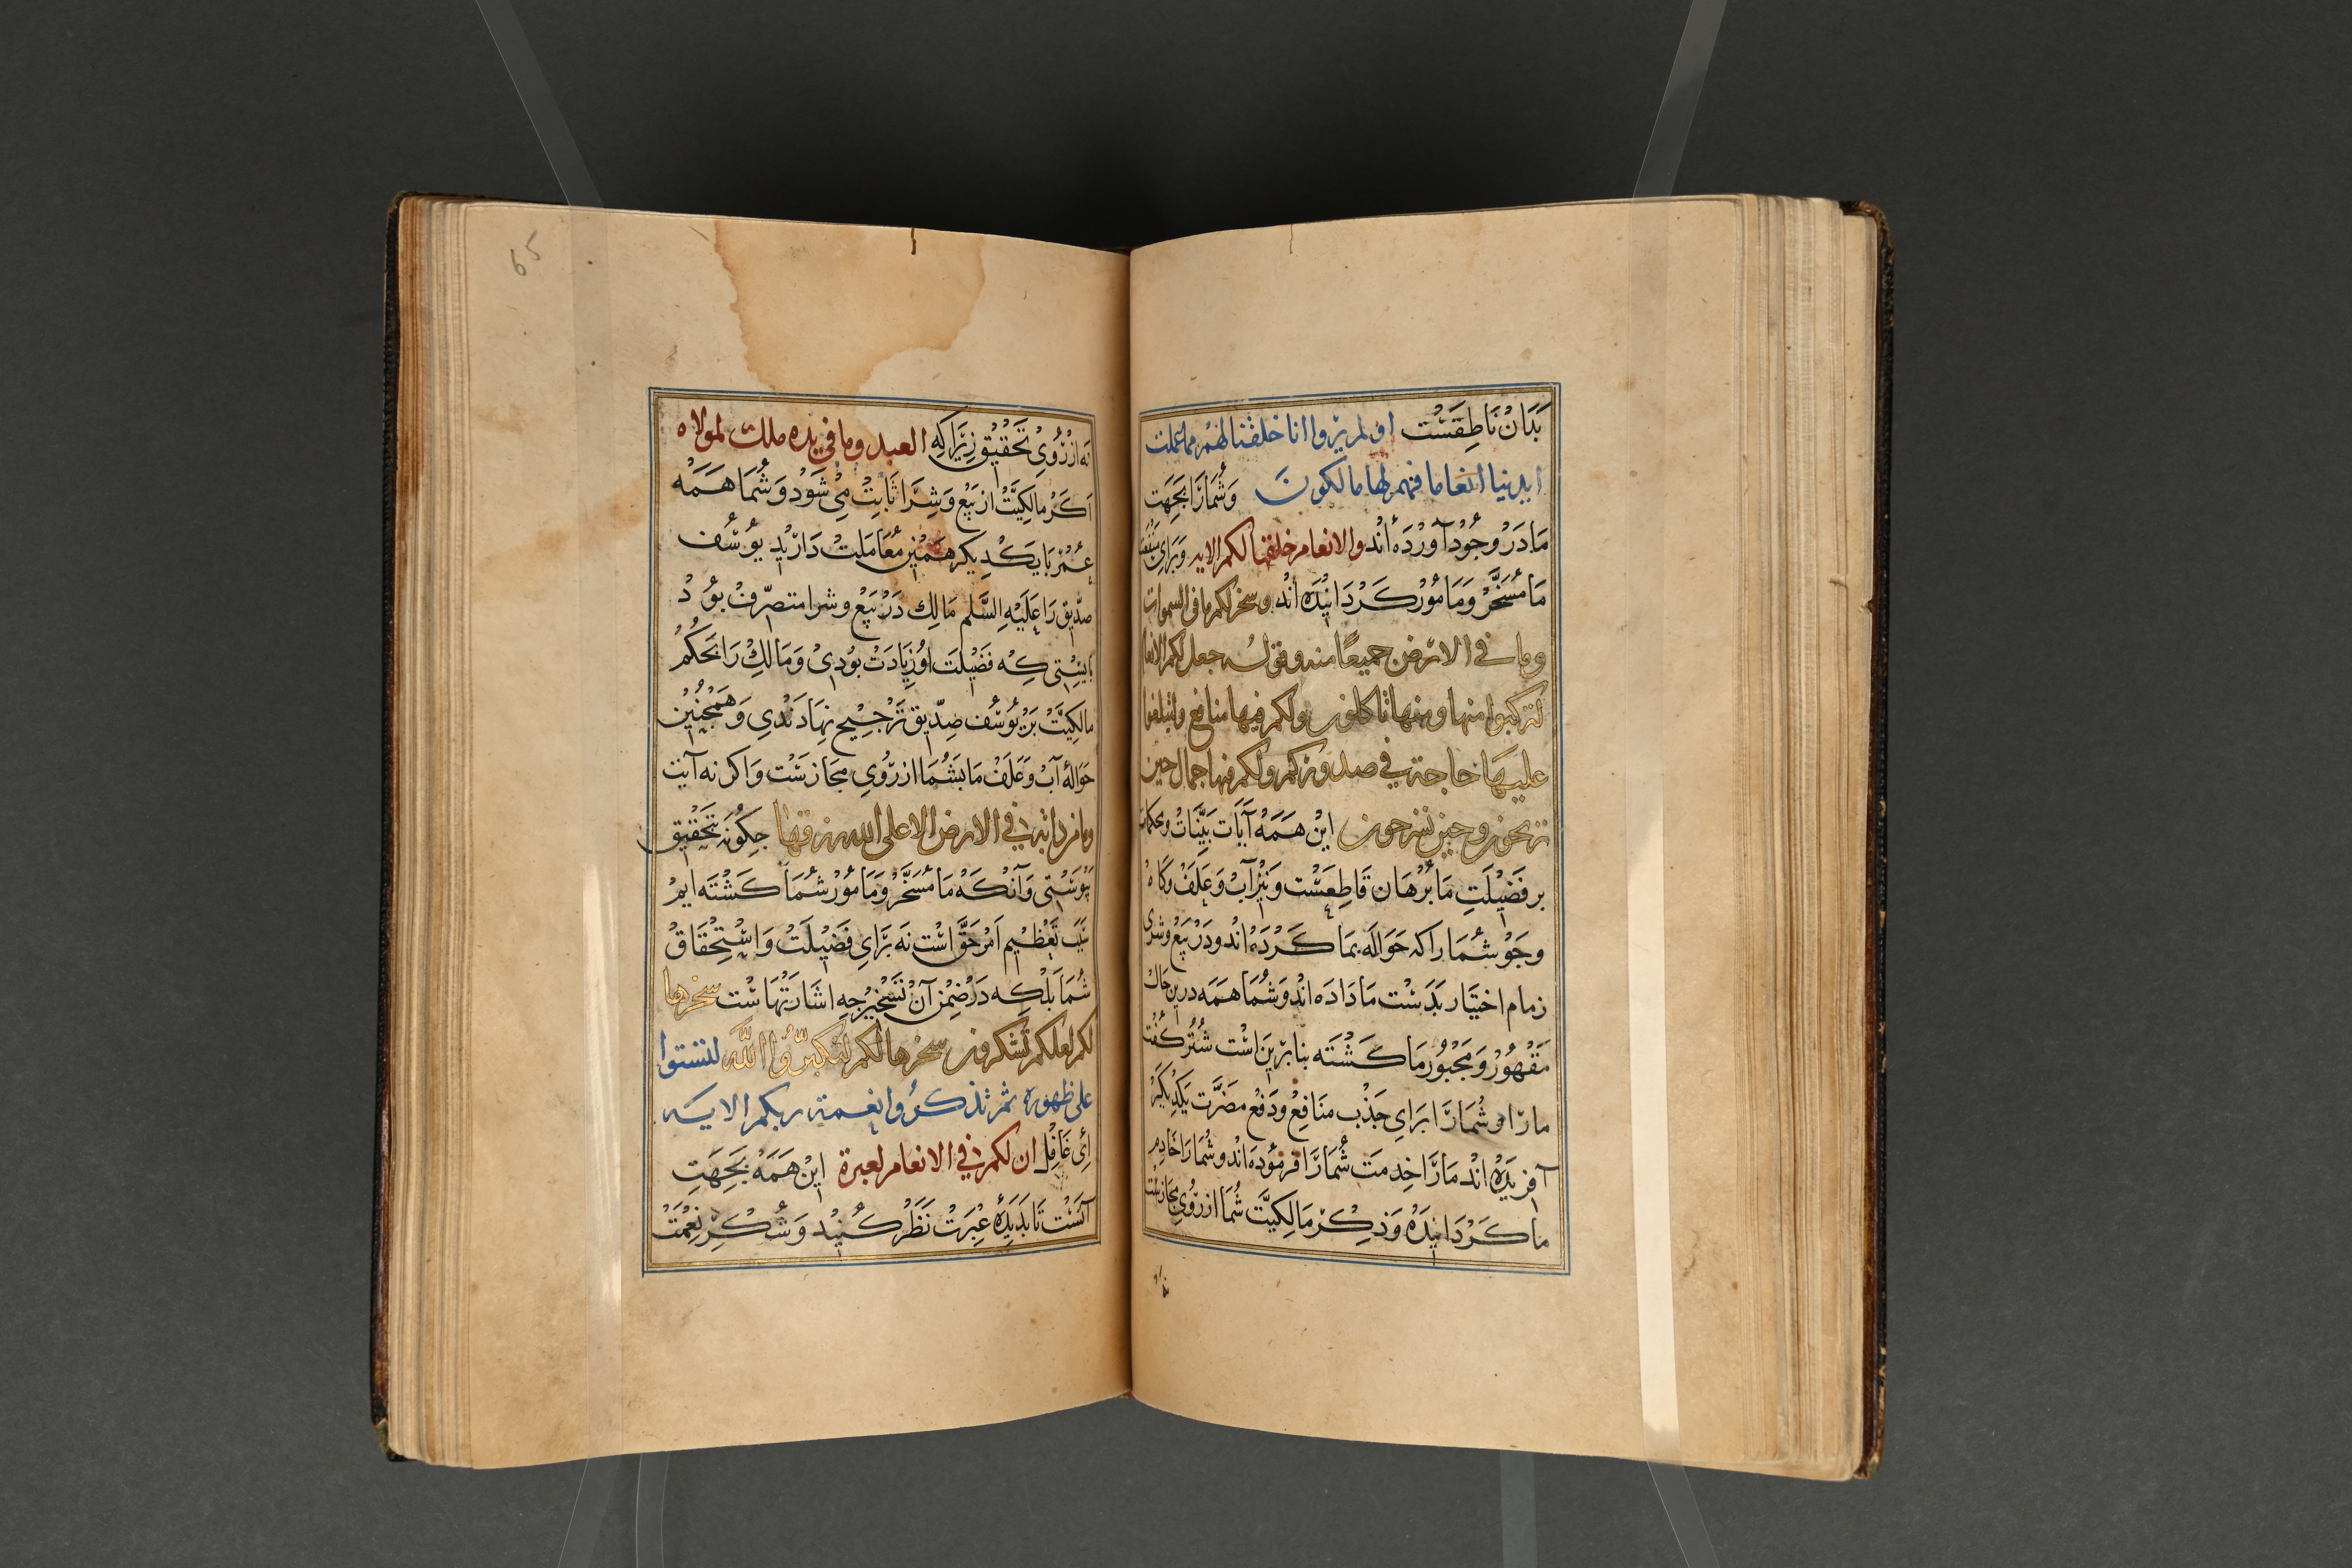 بَدَانْ نَاطِقَسْت اولم يروا انا خلقنا لهم مما عملت
ايدينا انعاما فهم لها مالكون وَشُمَارَا بَجِهَت
مَادَرْ وُجُودْ آوَرْدَه أنْد والانعام خلقها لكم الايه وَبَرَايِ مَنْفَعَت
مَا مُسَخَّرْ وَمَامُوْرْ كَرْدَانِيْدَه اَنْد وسخر لكم ما في السموات
وما في الارض جميعًا منه وقوله جعل لكم الانعا
لتركبوا منها ومنها تاكلون ولكم فيها منافع ولتبلغوا
عليها حاجة في صدوركم ولكم فيها جمال حين
تريحون وحين تسرحون اين هَمَه آيَاتِ بَيِّنَاتْ ومحكمات
بر فَضِيْلَتِ مَا بُرْهَان قَاطِعَسْت وَنِيْزْ آبْ وَعَلَفْ وَكَاه
وجَوْ شُمَا راكه حَوَالَه بمَا كَرْدَه اند ودَرْ بَيْع وشرى
زمام اختيَار بَدَسْت مَا دَادَه اند وَشُمَا هَمَه درين جاك
مَقْهُوْرْ وَ مَجْبُوْرمَا كَشْتَه بنابرين اسْت شُتُر كُفْت
مارا و شُمَارَا بَرَايِ جَذْب مَنَافِعْ ودَفْعِ مضَرَّت يَكْدِيكَرْ
آفريْدَه انْد مَارَا خِدمَت شُمَارَا فرمُوْدَه انْد و شُمَارَا خَادِم
ما كَرْدَانِيْدَه وَ ذِكْرِ مَالِكِيَّت شُمَا ازرُوْيِ مَجَازسْت
نه از
نه ازرُوْيِ تَحْقِيْق زِيْرَاكِه العبد وما في يده ملك لمولاه
اَكَرْ مالكِيَّتْ از بَيْع وَشِرَا ثَابِتْ مِيْ شَوَد وَشُمَا هَمَه
عُمْرْ بَا يَكْدِيكر هَمِيْن مُعَامَلت دَارِيْد يُوسُف
صدّيق رَا عَلَيْهِ السَّلم مَالِك دَرْ بَيْع وشرا متصرّفْ بُوْدْ
بايسْتي كِه فَضِيْلَت اوْ زِيَادَتْ بُوْدِيْ وَمَالِكْ رَا بحُكْم
مالِكِيَّتْ بَرْ يُوسُف صِدِّيق تَرْجِيْح نِهَادَنْدِي وَهَمْچُنِيْن
حَوالۀ آبْ وَعَلَفْ مَا بَشُمَا ازرُوْيِ مجَازسَتْ وَاكر نه آيت
وما من دابة في الارض الا على الله رزقها چكُونَه بتحْقِيْق
پَيْوَسْتِي وَآنْكَه مَا مُسَخَّرْ وَمَامُوْرْ شُمَا كَشْتَه ايمْ
تَعْظِيْم اَمْرِ حَقّ اسْت نَه بَرَايِ فَضِيْلَتْ وَاسْتِحْقَاقْ
شُمَا بَلْكِه دَرْ ضِمْنِ آنْ تَسْخِيْر چِه اشَارَتْهَاسْت سخرها
لكم لعلكم تشكرون سخرها لكم لِتُكَبِّرُوا اللَّه لتستوا
على ظهوره ثم تذكرُوا نعمة ربكم الايه
اَيْ غَافِل ان لكم في الانعام لعبرة اينْ هَمَه بَجِهَتِ
آنَسْت تَا بَدِيْدَۀ عِبْرَتْ نَظَرْ كُنِيْد وَ شُكْرِ نِعْمَتْ
65